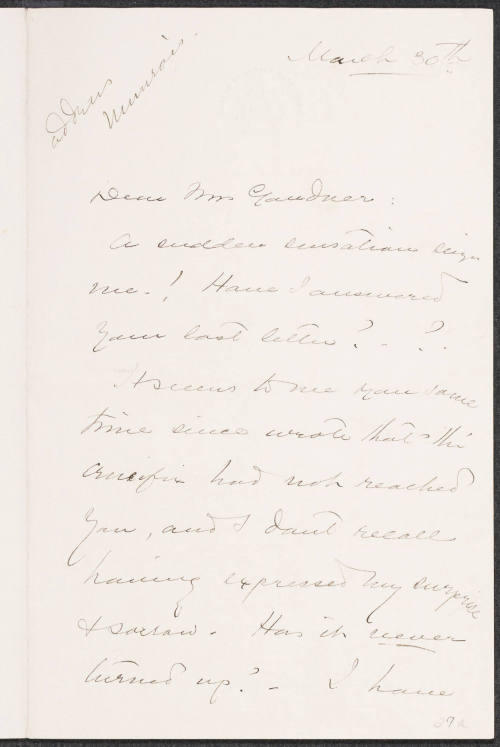 March 30th
address
Munroe's.
Dear Mrs Gardner:
A sudden sensation seizes
me.! Have I answered
your last letter? - ?.
It seems to me you some
time since wrote that the
crucifix had not reached
you, and I don't recall
having expressed my surprise
& sorrow. Has it never
turned up? - I have
37a